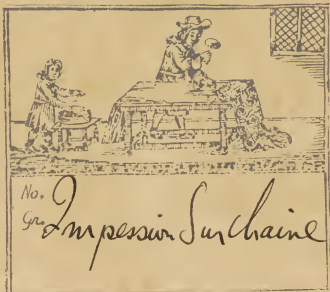 No.
Gr. Impession Sur Chaine